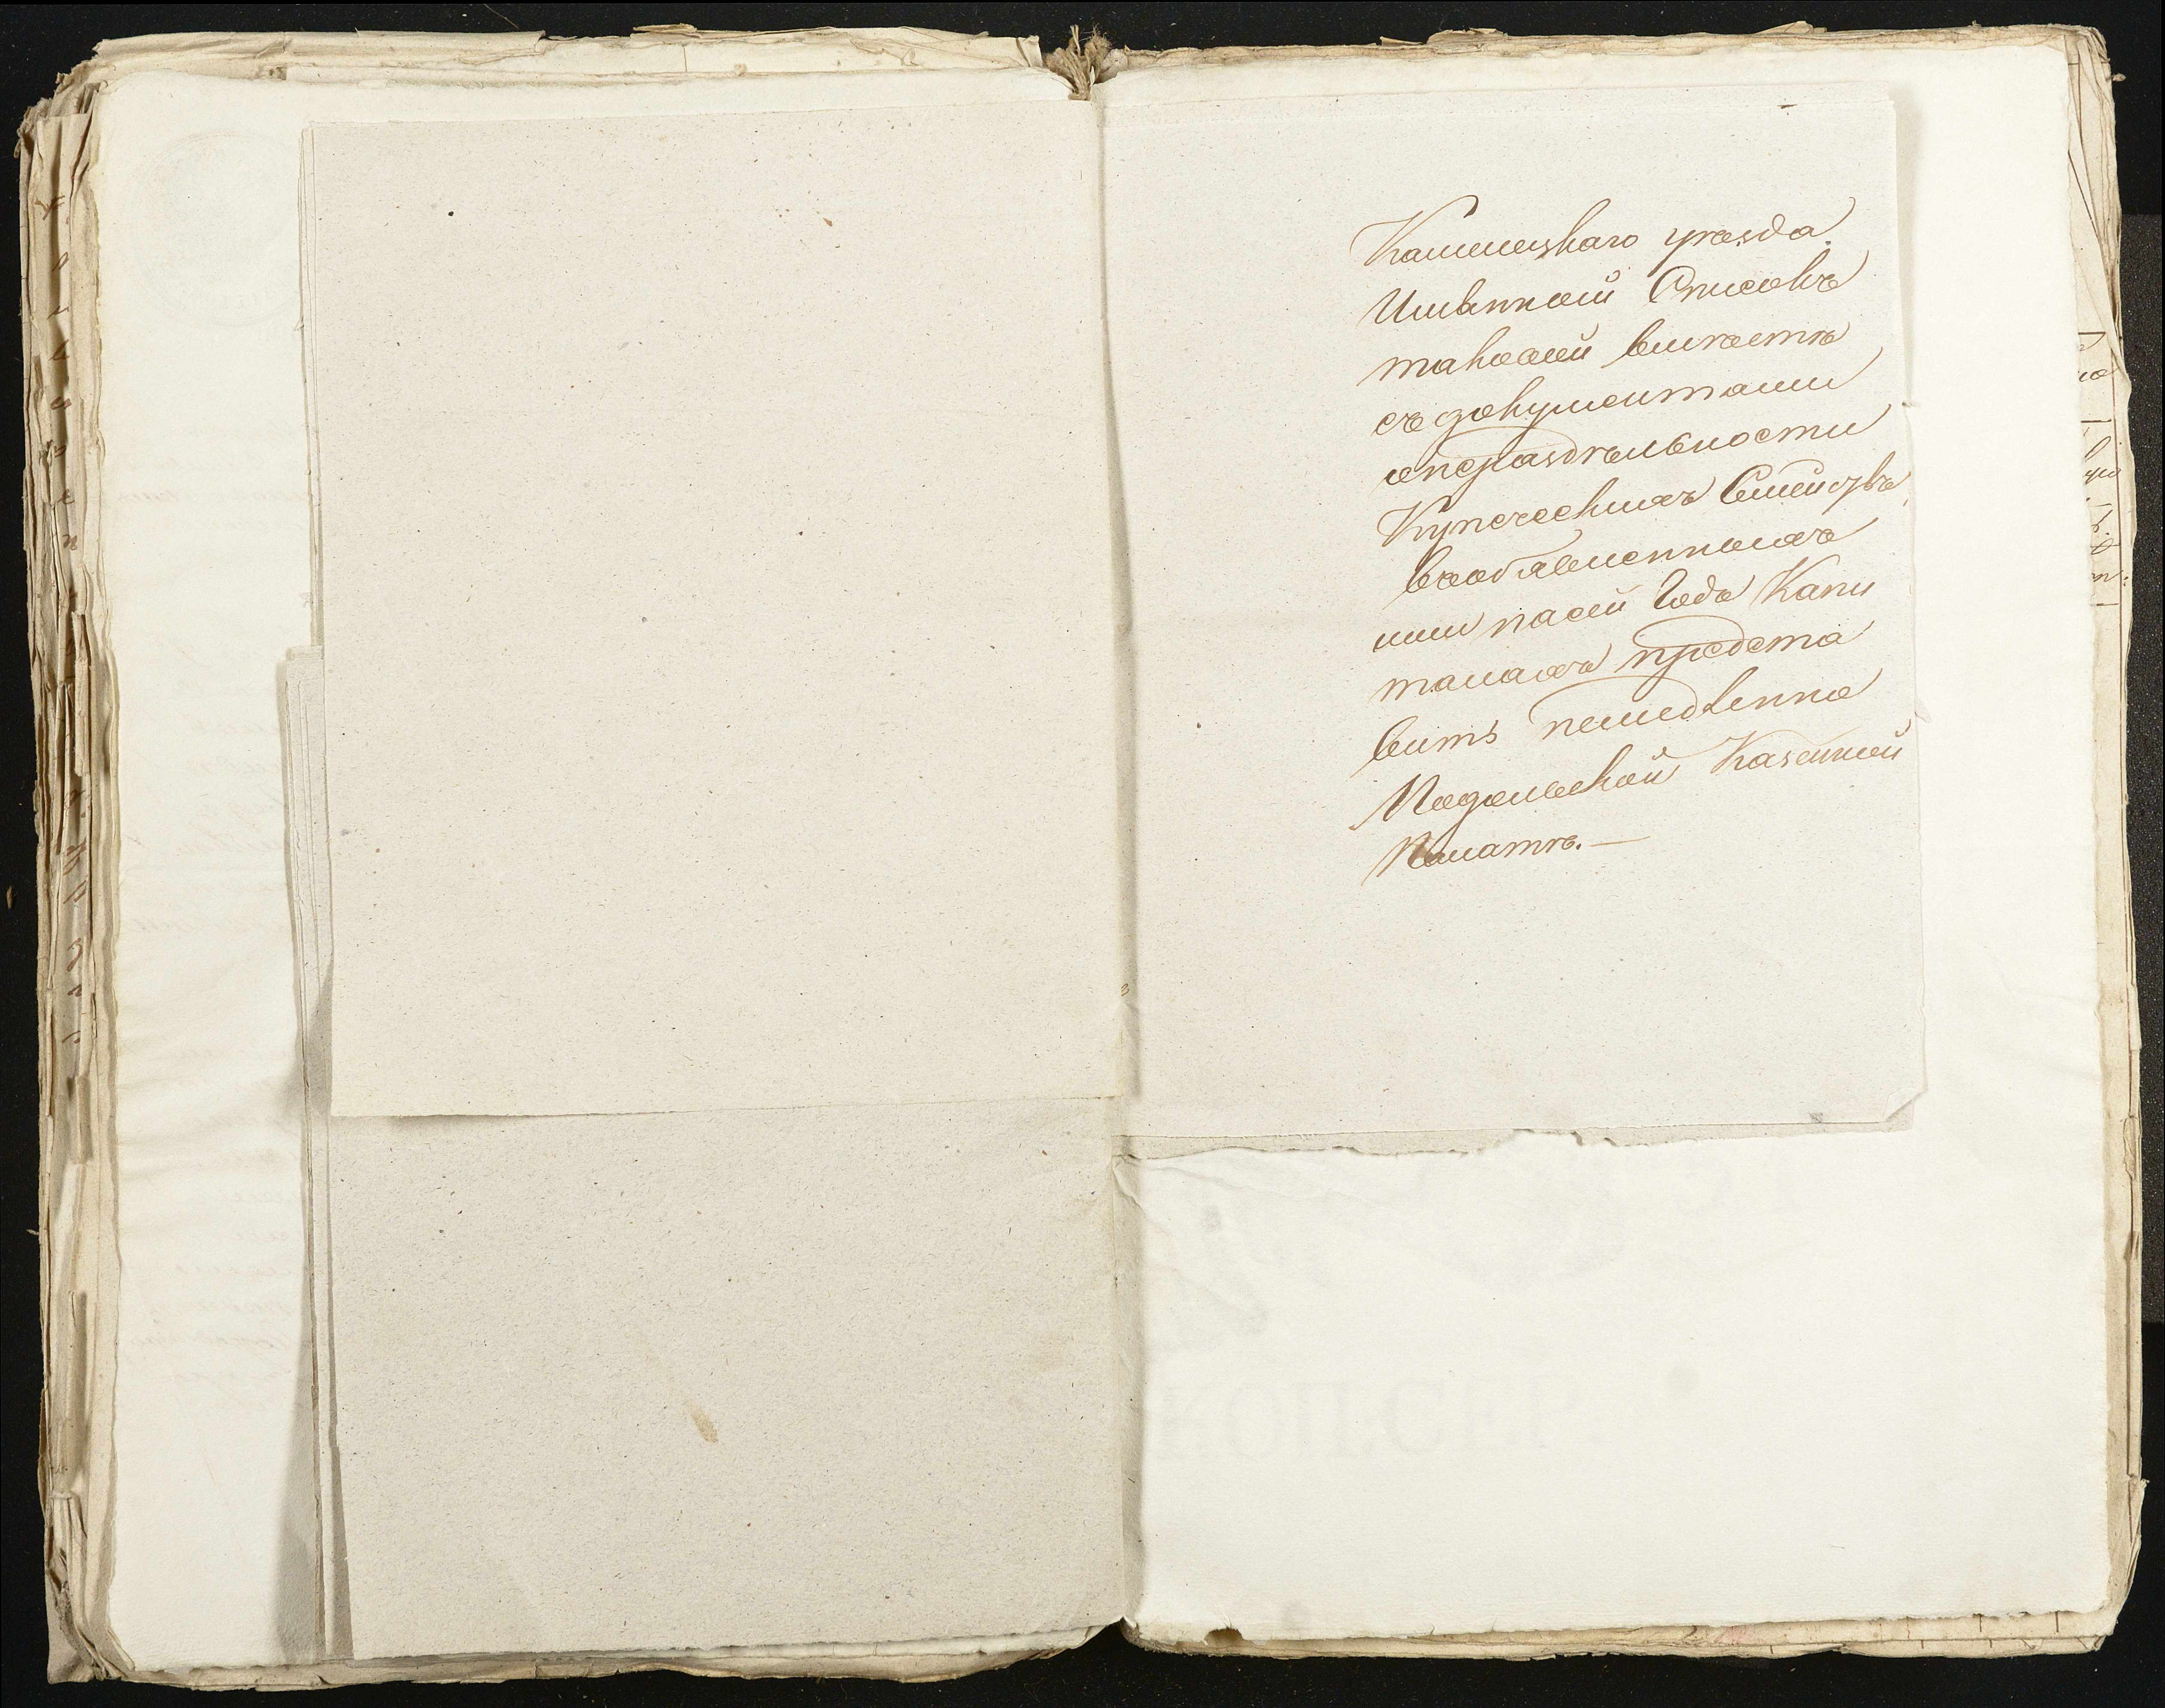 Каменецкаго уѣзда.
Имѣнной Списокъ
таковой вмѣстѣ
съ документами
онераздѣльности
Купеческихъ Семействъ
въобявленныхъ
ими насей Годъ Капи
талахъ предста
вить немедленно
Подольской Казенной
Палатѣ.—